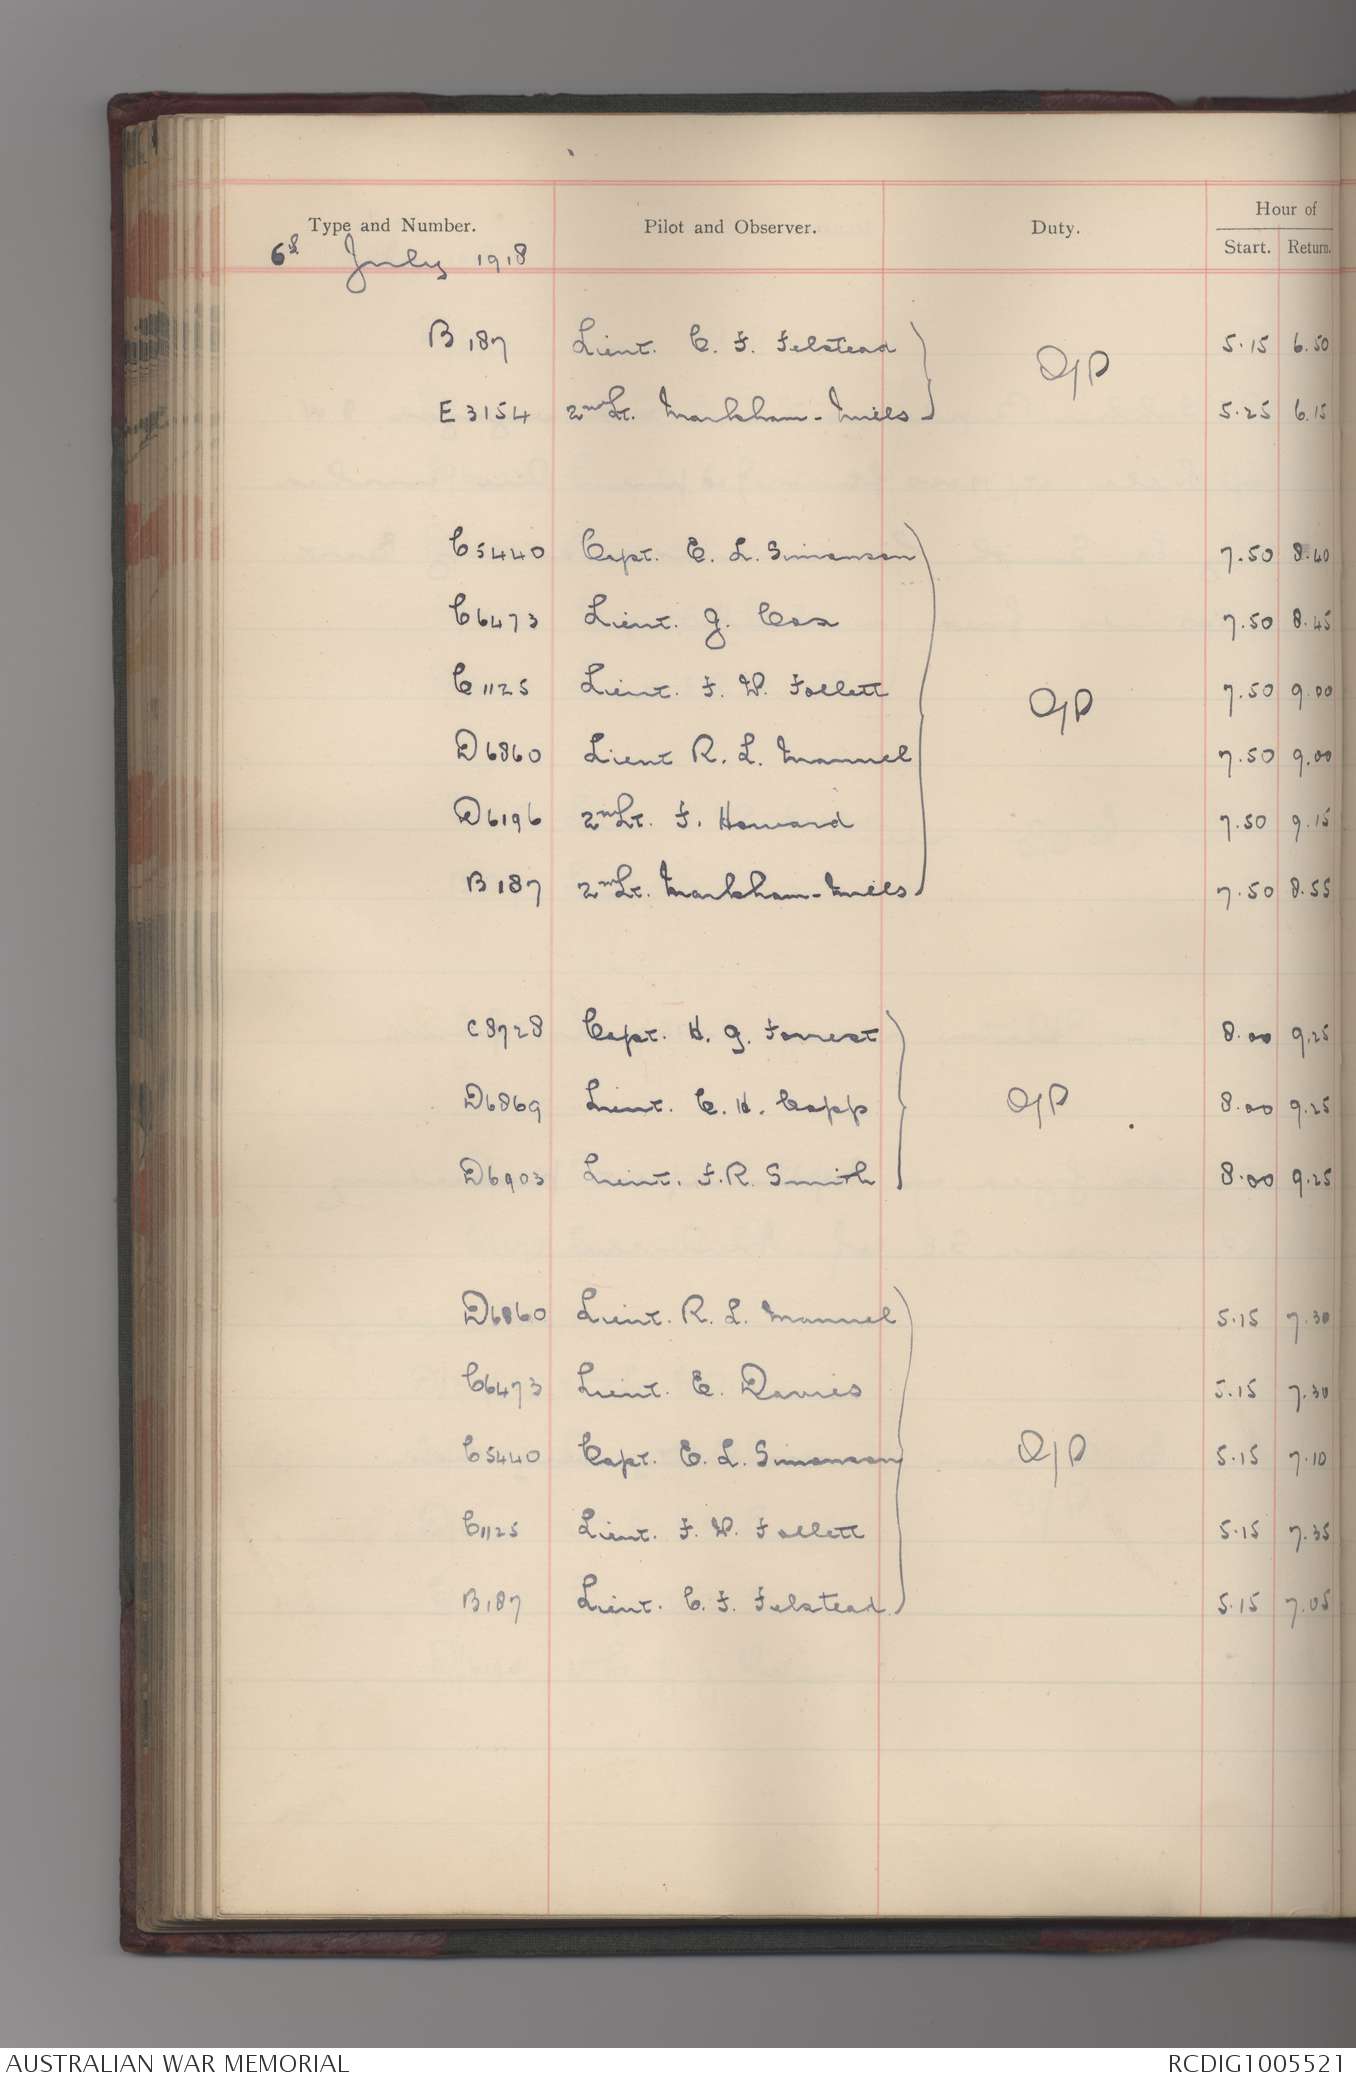 Type and Number. Pilot and Observer. Duty. Hour of
Start. Return.
6th July 1918
B 187 Lieut. C. F. Felstead 5.15 6.50
O/P
E 3154 2nd Lt. Markham-Mills 5.25 6.15
C5440 Capt. E. L. Simonson 7.50 8.40
C6473 Lieut. J. Cox 7.50 8.45
C1125 Lieut. F. W. Follett 7.50 9.00
O/P
D6860 Lieut R. L. Manuel 7.50 9.00
D6196 2nd Lt. F. Howard 7.50 9.15
B 187 2nd Lt. Markham-Mills 7.50 8.55
C8728 Capt. H. G. Forrest 8.00 9.25
D6869 Lieut. C. H. Copp O/P 8.00 9.25
D6903 Lieut. F.R. Smith 8.00 9.25
D6860 Lieut. R. L. Manuel 5.15 7.30
C6473 Lieut. E. Davies 5.15 7.30
C5440 Capt. E. L. Simonson O/P 5.15 7.10
C1125 Lieut. F. W. Follett 5.15 7.35
B187 Lieut. C. F. Felstead 5.15 7.05
AUSTRALIAN WAR MEMORIAL RCDIG1005521